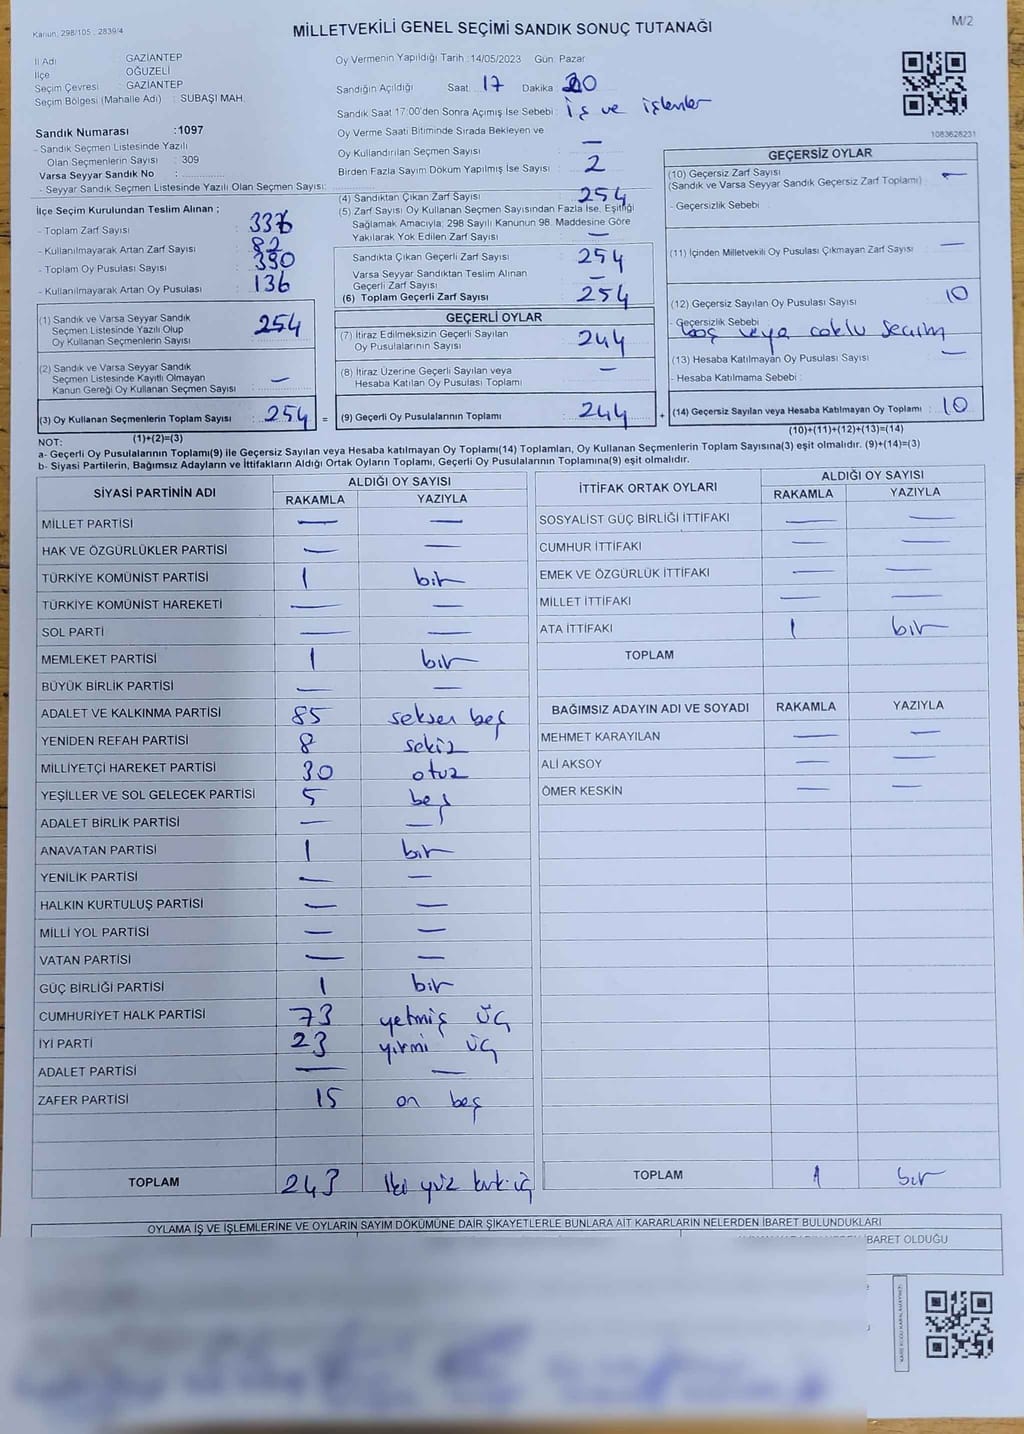 Kanun; 298/105 , 2839/4
MİLLETVEKİLİ GENEL SEÇİMİ SANDIK SONUÇ TUTANAĞI
M/2
İl Adı : GAZİANTEP
İlçe : OĞUZELİ
Seçim Çevresi : GAZİANTEP
Seçim Bölgesi (Mahalle Adı) : SUBAŞI MAH.
Sandık Numarası :1097
- Sandık Seçmen Listesinde Yazılı
Olan Seçmenlerin Sayısı : 309
Varsa Seyyar Sandık No :
- Seyyar Sandık Seçmen Listesinde Yazılı Olan Seçmen Sayısı:
İlçe Seçim Kurulundan Teslim Alınan ;
- Toplam Zarf Sayısı : 336
- Kullanılmayarak Artan Zarf Sayısı : 82
- Toplam Oy Pusulası Sayısı : 390
- Kullanılmayarak Artan Oy Pusulası : 136
(1) Sandık ve Varsa Seyyar Sandık
Seçmen Listesinde Yazılı Olup
Oy Kullanan Seçmenlerin Sayısı : 254
(2) Sandık ve Varsa Seyyar Sandık
Seçmen Listesinde Kayıtlı Olmayan
Kanun Gereği Oy Kullanan Seçmen Sayısı : —
(3) Oy Kullanan Seçmenlerin Toplam Sayısı : 254
(1)+(2)=(3)
Oy Vermenin Yapıldığı Tarih :14/05/2023 Gün: Pazar
Sandığın Açıldığı Saat 17 Dakika 20
Sandık Saat 17:00'den Sonra Açımış İse Sebebi : iş ve işlemler
Oy Verme Saati Bitiminde Sırada Bekleyen ve
Oy Kullandırılan Seçmen Sayısı : —
Birden Fazla Sayım Döküm Yapılmış İse Sayısı : 2
(4) Sandıktan Çıkan Zarf Sayısı : 254
(5) Zarf Sayısı Oy Kullanan Seçmen Sayısından Fazla İse, Eşitliği
Sağlamak Amacıyla; 298 Sayılı Kanunun 98. Maddesine Göre
Yakılarak Yok Edilen Zarf Sayısı : —
Sandıkta Çıkan Geçerli Zarf Sayısı : 254
Varsa Seyyar Sandıktan Teslim Alınan
Geçerli Zarf Sayısı : —
(6) Toplam Geçerli Zarf Sayısı : 254
GEÇERLİ OYLAR
(7) İtiraz Edilmeksizin Geçerli Sayılan
Oy Pusulalarının Sayısı : 244
(8) İtiraz Üzerine Geçerli Sayılan veya
Hesaba Katılan Oy Pusulası Toplamı : —
= (9) Geçerli Oy Pusulalarının Toplamı : 244 +
1083628231
GEÇERSİZ OYLAR
(10) Geçersiz Zarf Sayısı : —
(Sandık ve Varsa Seyyar Sandık Geçersiz Zarf Toplamı)
- Geçersizlik Sebebi :
(11) İçinden Milletvekili Oy Pusulası Çıkmayan Zarf Sayısı : —
(12) Geçersiz Sayılan Oy Pusulası Sayısı : 10
- Geçersizlik Sebebi : boş veya çoklu seçim
(13) Hesaba Katılmayan Oy Pusulası Sayısı : —
- Hesaba Katılmama Sebebi :
(14) Geçersiz Sayılan veya Hesaba Katılmayan Oy Toplamı : 10
(10)+(11)+(12)+(13)=(14)
NOT:
a- Geçerli Oy Pusulalarının Toplamı(9) ile Geçersiz Sayılan veya Hesaba katılmayan Oy Toplamı(14) Toplamları, Oy Kullanan Seçmenlerin Toplam Sayısına(3) eşit olmalıdır. (9)+(14)=(3)
b- Siyasi Partilerin, Bağımsız Adayların ve İttifakların Aldığı Ortak Oyların Toplamı, Geçerli Oy Pusulalarının Toplamına(9) eşit olmalıdır.
SİYASİ PARTİNİN ADI ALDIĞI OY SAYISI
RAKAMLA YAZIYLA
MİLLET PARTİSİ — —
HAK VE ÖZGÜRLÜKLER PARTİSİ — —
TÜRKİYE KOMÜNİST PARTİSİ 1 bir
TÜRKİYE KOMÜNİST HAREKETİ — —
SOL PARTİ — —
MEMLEKET PARTİSİ 1 bir
BÜYÜK BİRLİK PARTİSİ — —
ADALET VE KALKINMA PARTİSİ 85 seksen beş
YENİDEN REFAH PARTİSİ 8 sekiz
MİLLİYETÇİ HAREKET PARTİSİ 30 otuz
YEŞİLLER VE SOL GELECEK PARTİSİ 5 beş
ADALET BİRLİK PARTİSİ — —
ANAVATAN PARTİSİ 1 bir
YENİLİK PARTİSİ — —
HALKIN KURTULUŞ PARTİSİ — —
MİLLİ YOL PARTİSİ — —
VATAN PARTİSİ — —
GÜÇ BİRLİĞİ PARTİSİ 1 bir
CUMHURİYET HALK PARTİSİ 73 yetmiş üç
İYİ PARTİ 23 yirmi üç
ADALET PARTİSİ — —
ZAFER PARTİSİ 15 on beş
TOPLAM 243 iki yüz kırk üç
İTTİFAK ORTAK OYLARI ALDIĞI OY SAYISI
RAKAMLA YAZIYLA
SOSYALİST GÜÇ BİRLİĞİ İTTİFAKI — —
CUMHUR İTTİFAKI — —
EMEK VE ÖZGÜRLÜK İTTİFAKI — —
MİLLET İTTİFAKI — —
ATA İTTİFAKI 1 bir
TOPLAM
BAĞIMSIZ ADAYIN ADI VE SOYADI RAKAMLA YAZIYLA
MEHMET KARAYILAN — —
ALİ AKSOY — —
ÖMER KESKİN — —
TOPLAM 1 bir
OYLAMA İŞ VE İŞLEMLERİNE VE OYLARIN SAYIM DÖKÜMÜNE DAİR ŞİKAYETLERLE BUNLARA AİT KARARLARIN NELERDEN İBARET BULUNDUKLARI
İBARET OLDUĞU